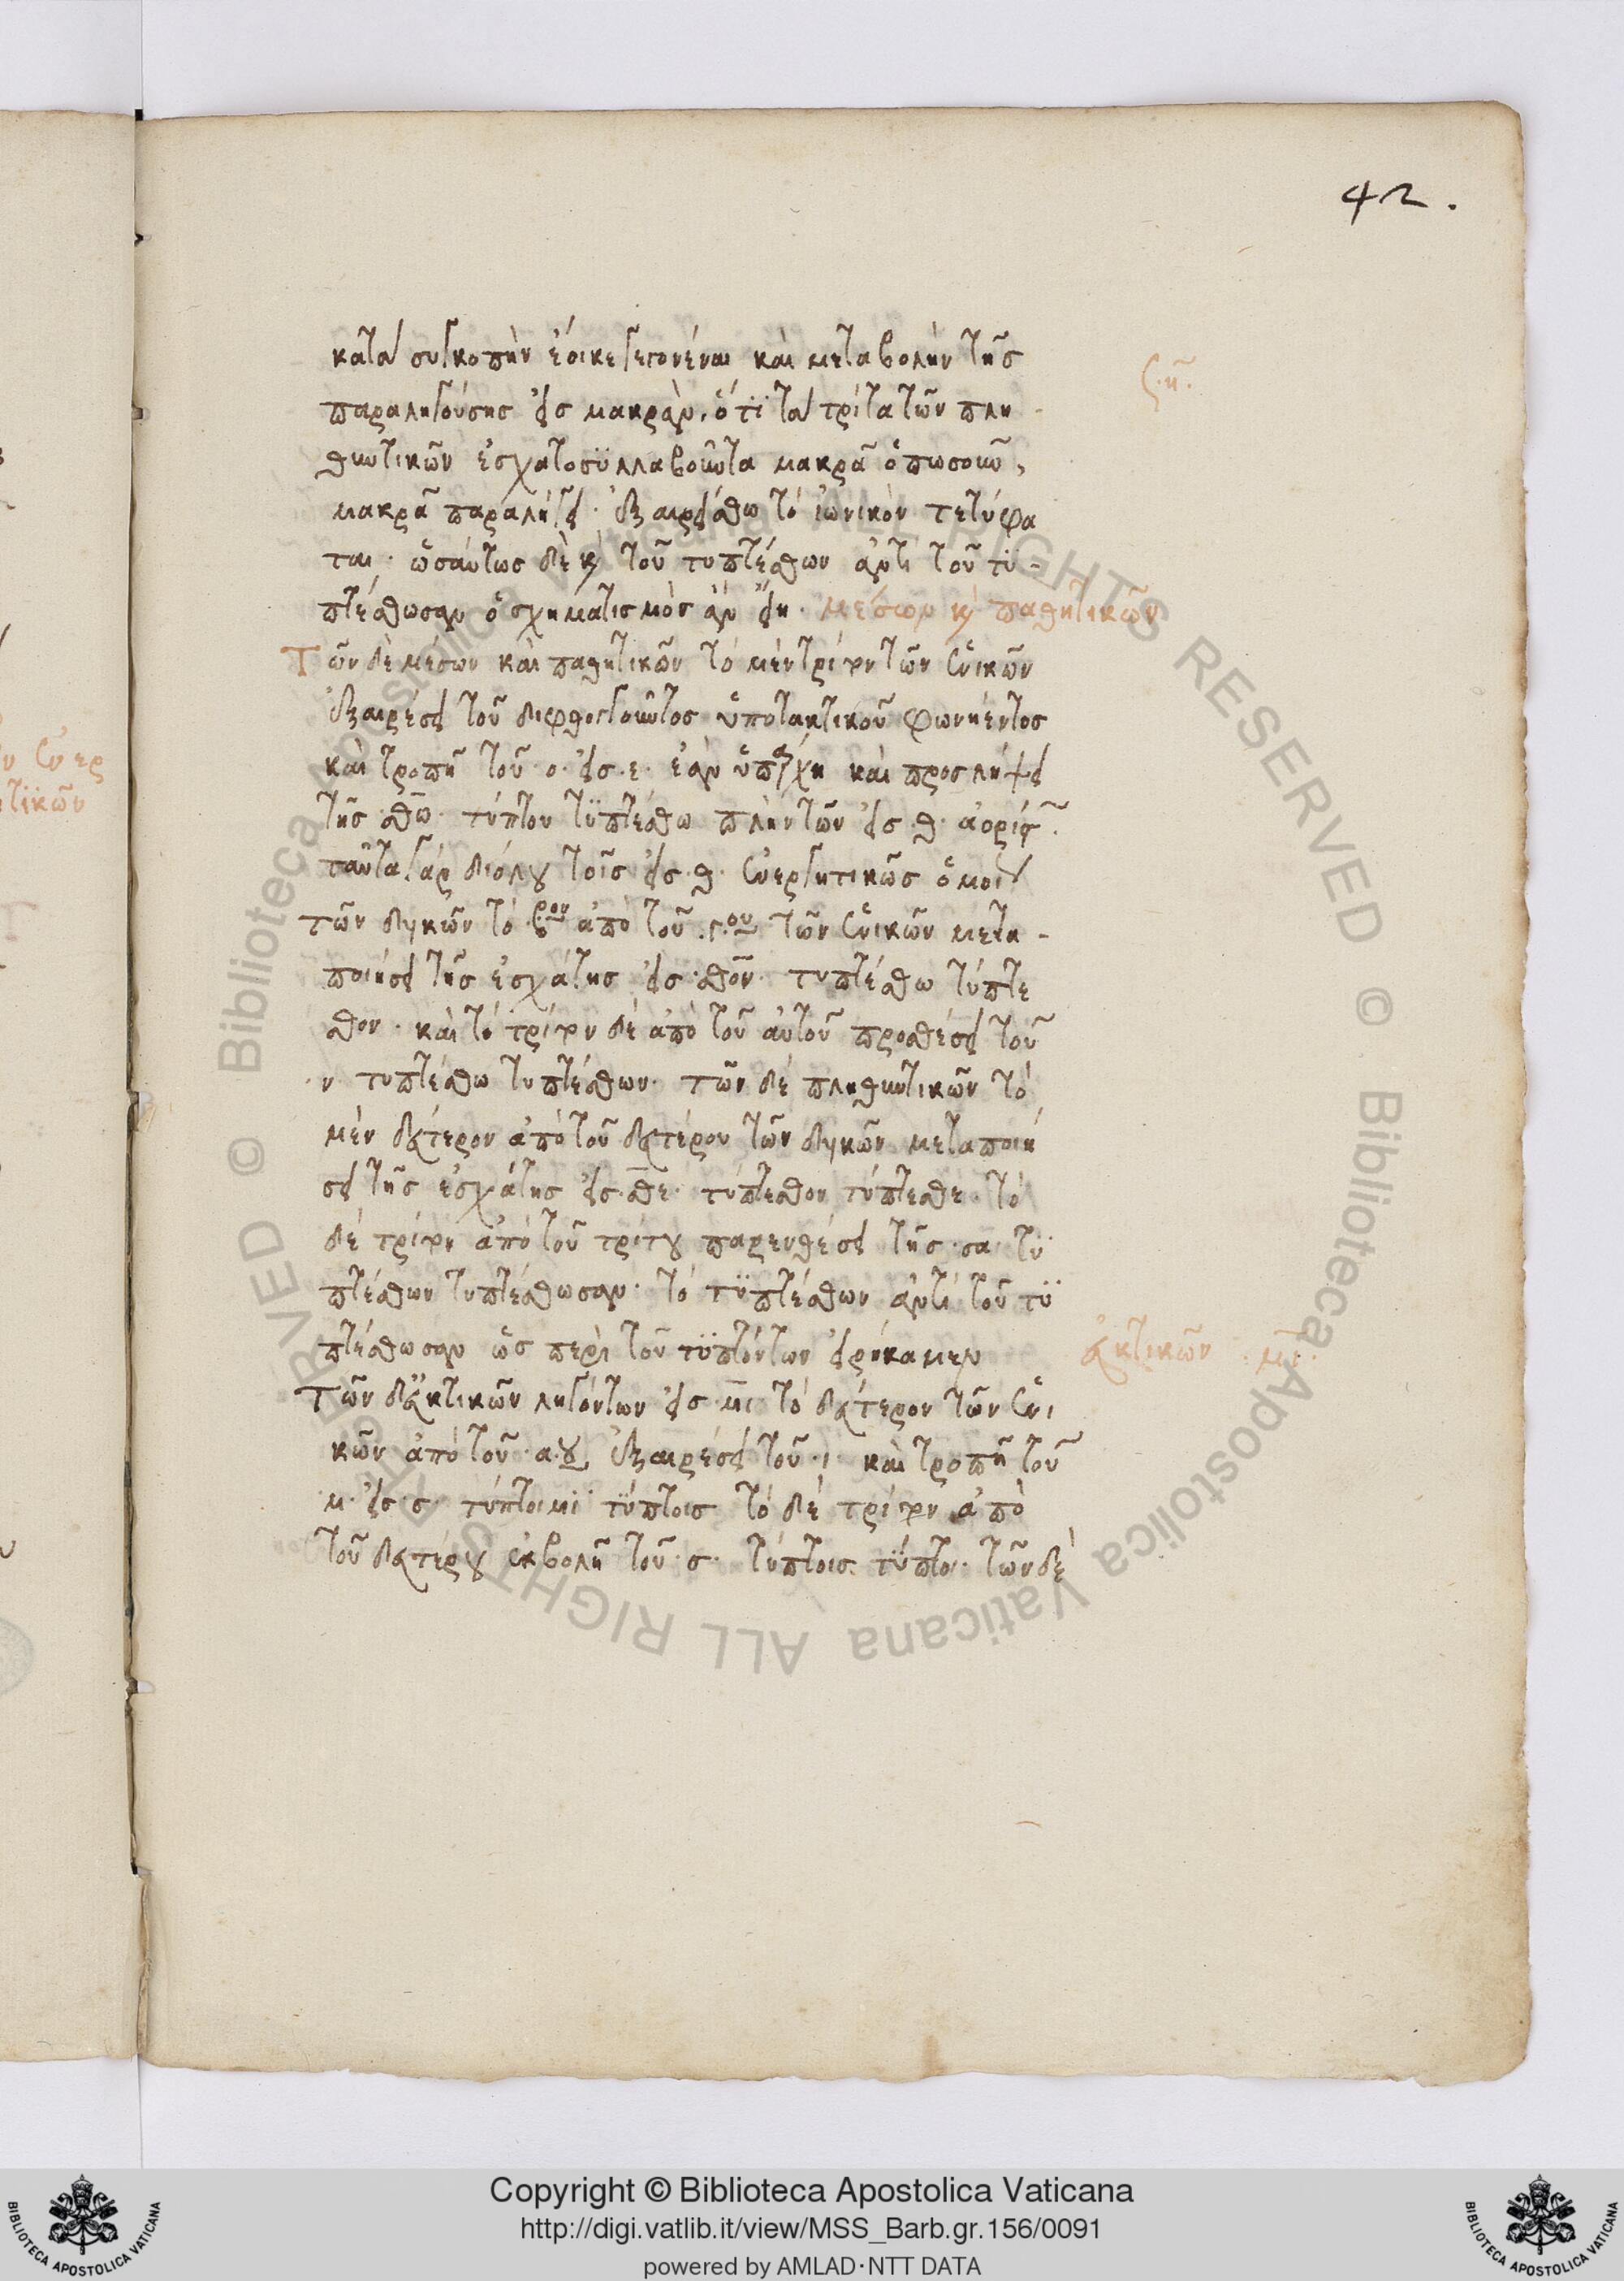 42.
κατὰ συγκοπὴν ἔοικε γεγονέναι καὶ μεταβολὴν τῆς
ζ. η.
παραληγούσης εἰς μακράν. ὅτϊ τὰ τρίτα τῶν πλη
θυντικῶν ἐσχατοσϋλλαβοῦντα μακρᾶ ὁπωσοῦν,
μακρᾶ παραλήγει. ἐξαιρείσθω τὸ ἰωνικὸν τετύφα
ται. ὡσαύτως δὲ κὶ τοῦ τυπτέσθων ἀντὶ τοῦ τϋ-
πτέσθωσαν ὁ σχηματισμὸς ἂν εἴη. μέσων κὶ παθητικῶν
Τῶν δὲ μέσων καὶ παθητικῶν τὸ μὲν τρίτον τῶν ἑνικῶν
ἐξαιρέσει τοῦ διφθογγοῦντος ὑποτακτικοῦ φωνήεντος
καὶ τροπῇ τοῦ .ο. εἰς .ε. ἐὰν ὑπάρχῃ καὶ προσλήψει
τῆς σθω. τύπτου τϋπτέσθω πλὴν τῶν εἰς .θ. ἀορίστ.
ταῦτα γὰρ διόλου τοῖς εἰς .θ. ἐνεργητικῶς ὅμοι
τῶν δυϊκῶν τὸ βον ἀπὸ τοῦ γου τῶν ἑνικῶν μετα-
ποιήσει τῆς ἐσχάτης εἰς .σθον. τυπτέσθω τύπτε
σθον. καὶ τὸ τρίτον δὲ ἀπὸ τοῦ αὐτοῦ προσθέσει τοῦ
.ν. τυπτέσθω τυπτέσθων. τῶν δὲ πληθυντικῶν τὸ
μὲν δεύτερον ἀπὸ τοῦ δευτέρου τῶν δυϊκῶν μεταποιή
σει τῆς ἐσχάτης εἰς .σθε. τύπτεσθον τύπτεσθε. τὸ
δὲ τρίτον ἀπὸ τοῦ τρίτου παρενθέσει τῆς .σα. τϋ
πτέσθων τυπτέσθωσαν. τὸ τϋπτέσθων ἀντὶ τοῦ τϋ
πτέσθωσαν ὡς περὶ τοῦ τϋπτόντων εἰρήκαμεν
εὐκτικῶν. μι.
Τῶν δ' εὐκτικῶν ληγόντων εἰς μι τὸ δεύτερον τῶν ἑνι
κῶν ἀπὸ τοῦ .α.ου ἐξαιρέσει τοῦ .ι. καὶ τροπῇ τοῦ
.μ. εἰς ς. τύπτοιμϊ τύπτοις τὸ δὲ τρίτον ἀπὸ
τοῦ δευτέρου ἐκβολῇ τοῦ .ς. τύπτοις τϋπτοι. τῶν δὲ
Copyright © Biblioteca Apostolica Vaticana
http://digi.vatlib.it/view/MSS_Barb.gr.156/0091
powered by AMLAD·NTT DATA